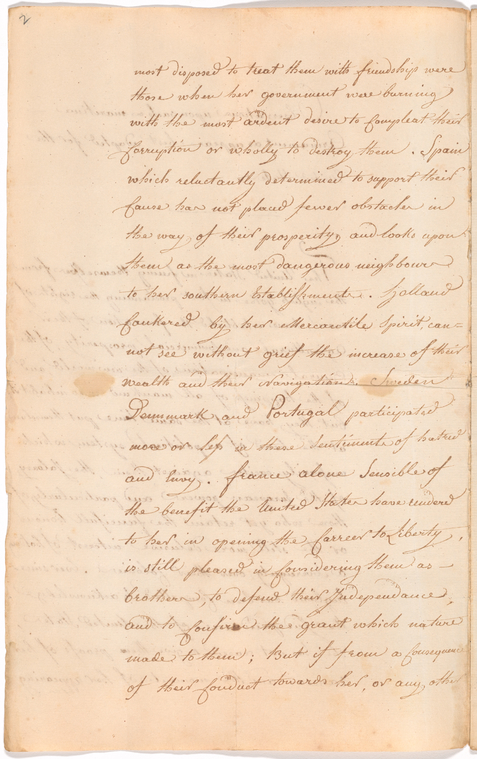 2
most disposed to treat them with friendship were
those when her government were burning
with the most ardent desire to Compleat their
Corruption or wholly to destroy them. Spain
which reluctantly determined to support their
Cause has not placed fewer obstacles in
the way of their prosperity, and looks upon
them as the most dangerous neighbours
to her southern Establishments. Holland
Cankered by her Mercantile Spirit, can=
not see without grief the increase of their
wealth and their Navigation. Sweden
Denmmark, and Portugal participated
more or less in these Sentiments of hatred
and Envy. france alone Sensible of
the benefit the United States have rendered
to her in opening the Carreer to Liberty,
is still pleased in Considering them as -
brothers, to defend their Independance,
and to Confirm the grant which nature
made to them; But if from a Consequence
of their Conduct towards her, or any other